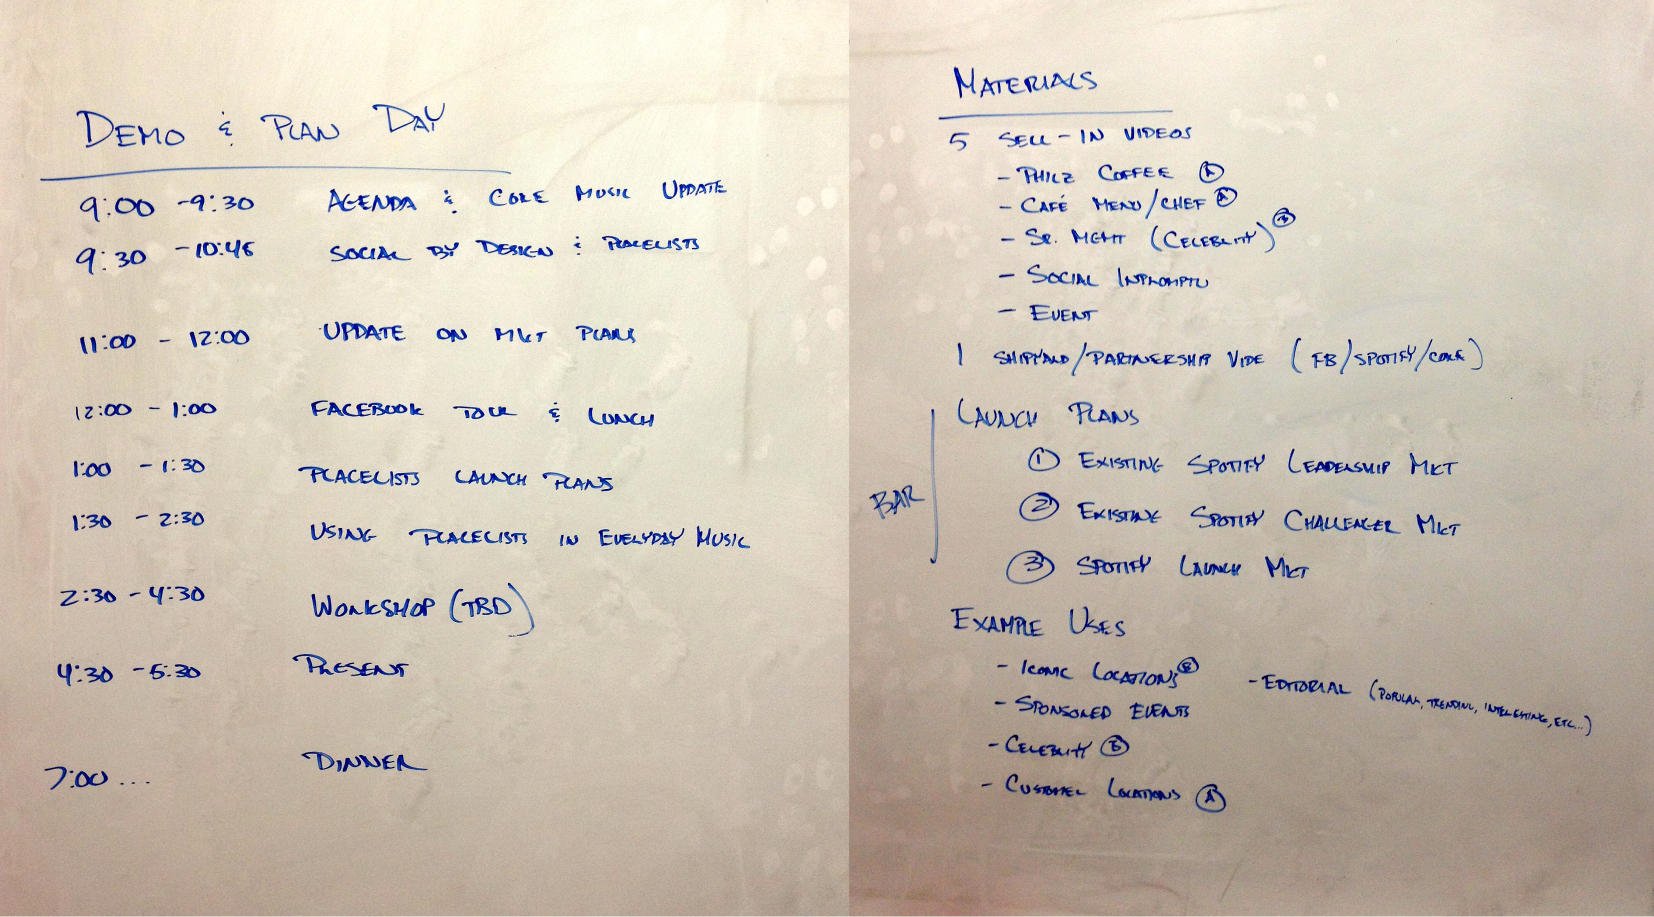 DEMO & PLAN DAY
9:00 - 9:30 AGENDA & CORE MUSIC UPDATE
9:30 - 10:45 SOCIAL BY DESIGN & PLACELISTS
11:00 - 12:00 UPDATE ON MKT PLANS
12:00 - 1:00 FACEBOOK TOUR & LUNCH
1:00 - 1:30 PLACELISTS LAUNCH PLANS
1:30 - 2:30 USING PLACELISTS IN EVERYDAY MUSIC
2:30 - 4:30 WORKSHOP (TBD)
4:30 - 5:30 PRESENT
7:00 ... DINNER
MATERIALS
5 SELL-IN VIDEOS
- PHILZ COFFEE A
- CAFÉ MENU/CHEF A
- SR. MGMT (CELEBRITY) B
- SOCIAL INPROMPTU
- EVENT
1 SHIPYARD/PARTNERSHIP VIDE (FB/SPOTIFY/CORE)
LAUNCH PLANS
1 EXISTING SPOTIFY LEADERSHIP MKT
BAR
2 EXISTING SPOTIFY CHALLENGER MKT
3 SPOTIFY LAUNCH MKT
EXAMPLE USES
- ICONIC LOCATIONS B - EDITORIAL (POPULAR, TRENDING, INTERESTING, ETC...)
- SPONSORED EVENTS
- CELEBRITY B
- CUSTOMER LOCATIONS A